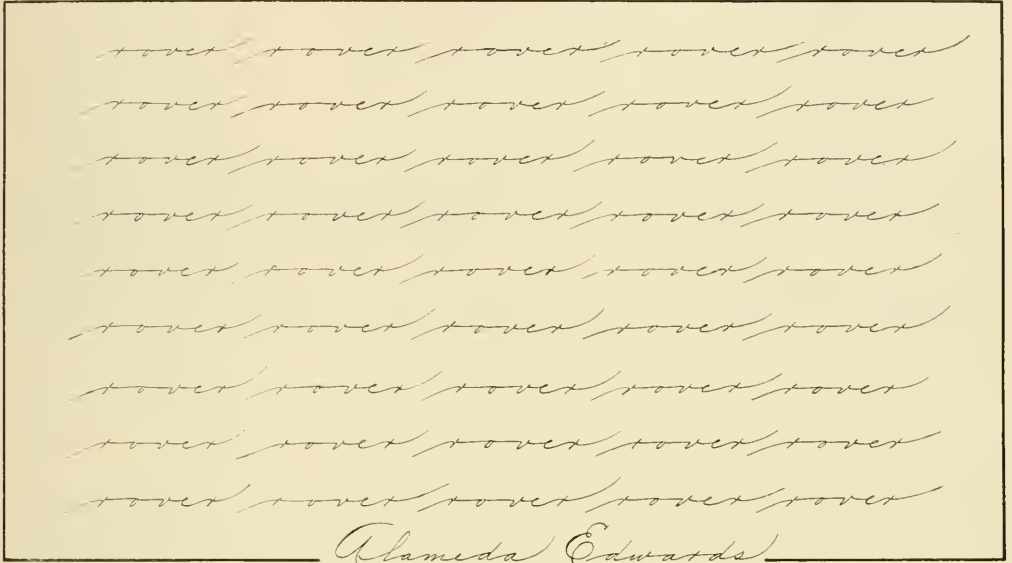 rover rover rover rover rover
rover rover rover rover rover
rover rover rover rover rover
rover rover rover rover rover
rover rover rover rover rover
rover rover rover rover rover
rover rover rover rover rover
rover rover rover rover rover
rover rover rover rover rover
Alameda Edwards